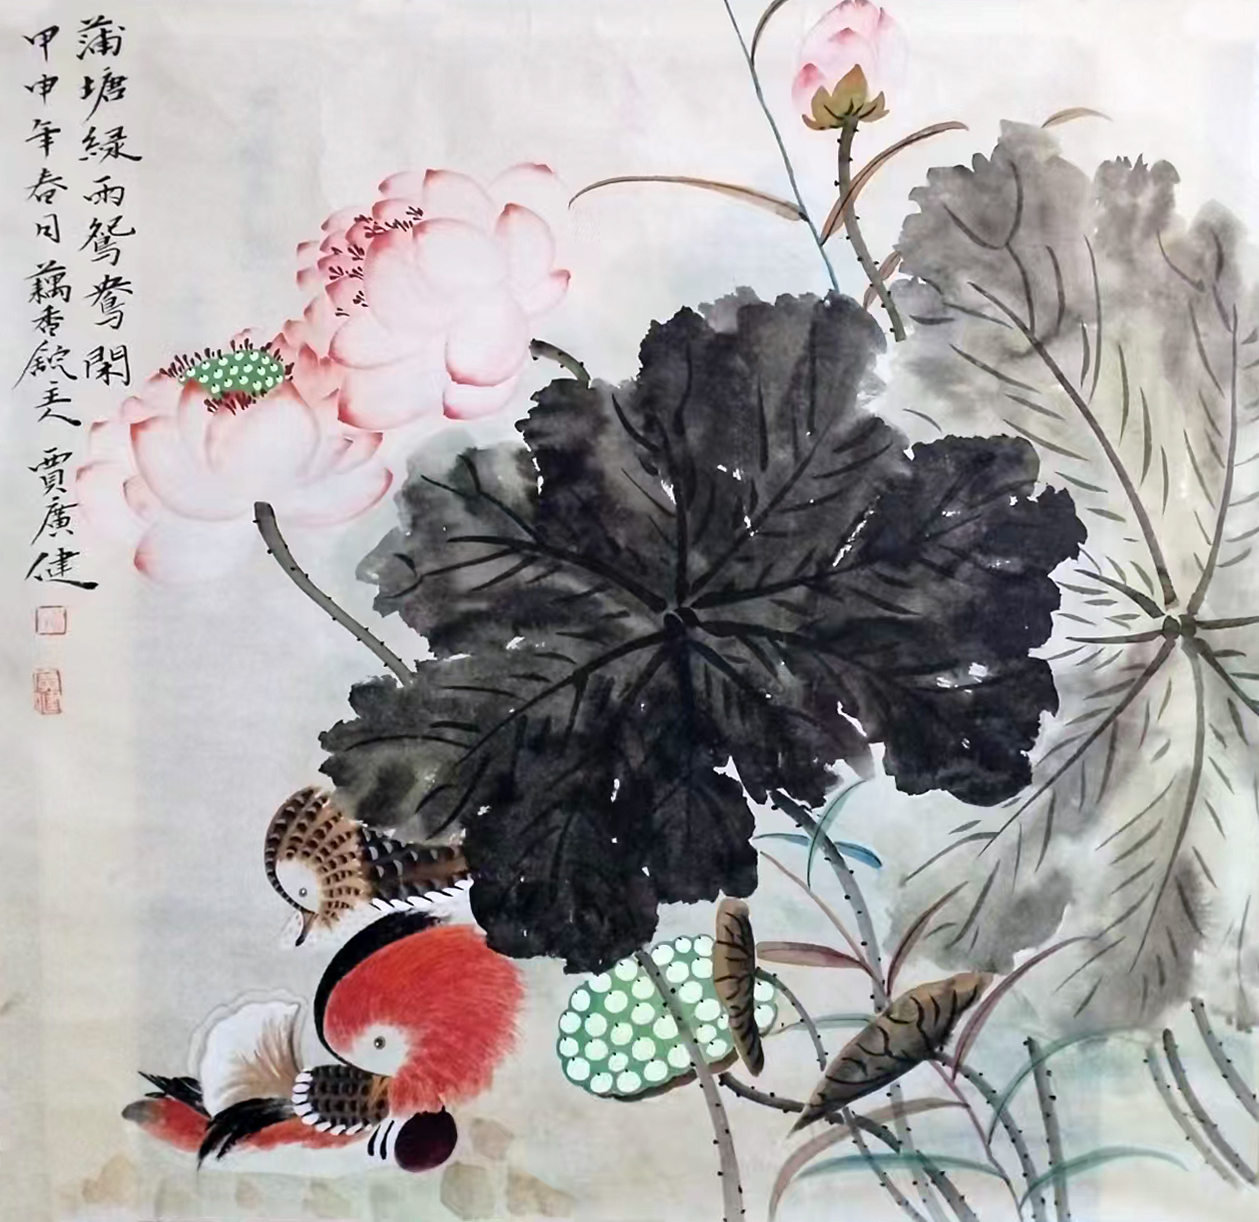 蒲塘緑雨鴛鴦閑
甲申年春日藕香館主人賈廣健